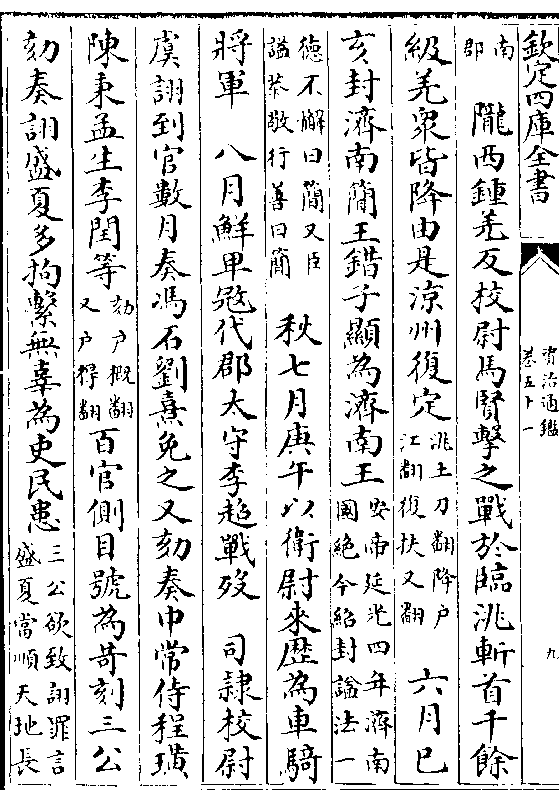 欽定四庫全書
資治通鑑
卷五十一
九
南郡
隴西鍾羌反校尉馬賢擊之戰於臨洮斬首千餘
級羌衆皆降由是涼州復定
洮土刀翻降户
江翻復扶又翻
六月已
亥封濟南簡王錯子顯為濟南王
安帝延光四年濟南
國絶今紹封諡法一
德不懈曰簡又臣
諡恭敬行善曰簡
秋七月庚午以衛尉來歴為車騎
將軍
八月鮮卑冦代郡太守李超戰歿
司隸校尉
虞詡到官數月奏馮石劉熹免之又劾奏中常侍程璜
陳秉孟生李閏等
劾户概翻
又户得翻
百官側目號為苛刻三公
劾奏詡盛夏多拘繫無辜為吏民患
三公欲致詡罪言
盛夏當順天地長